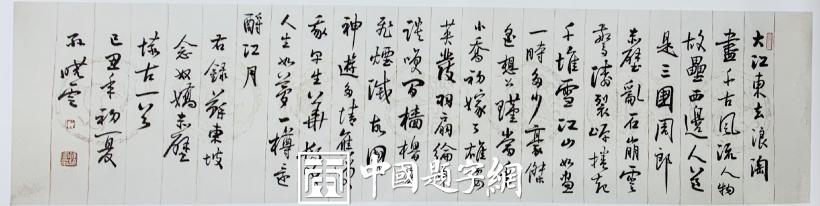 大江東去浪淘
盡千古風流人物
故壘西邊人道
是三國周郎
赤壁亂石崩雲
驚濤裂岸捲起
千堆雪江山如畫
一時多少豪傑
遙想公瑾當年
小喬初嫁了雄姿
英發羽扇綸巾
談笑間檣櫓灰
飛煙滅故國
神遊多情應笑
我早生華髮
人生如夢一樽還
酹江月
右錄蘇東坡
念奴嬌赤壁
懷古一首
己丑年初夏
孫曉雲
中國題字網